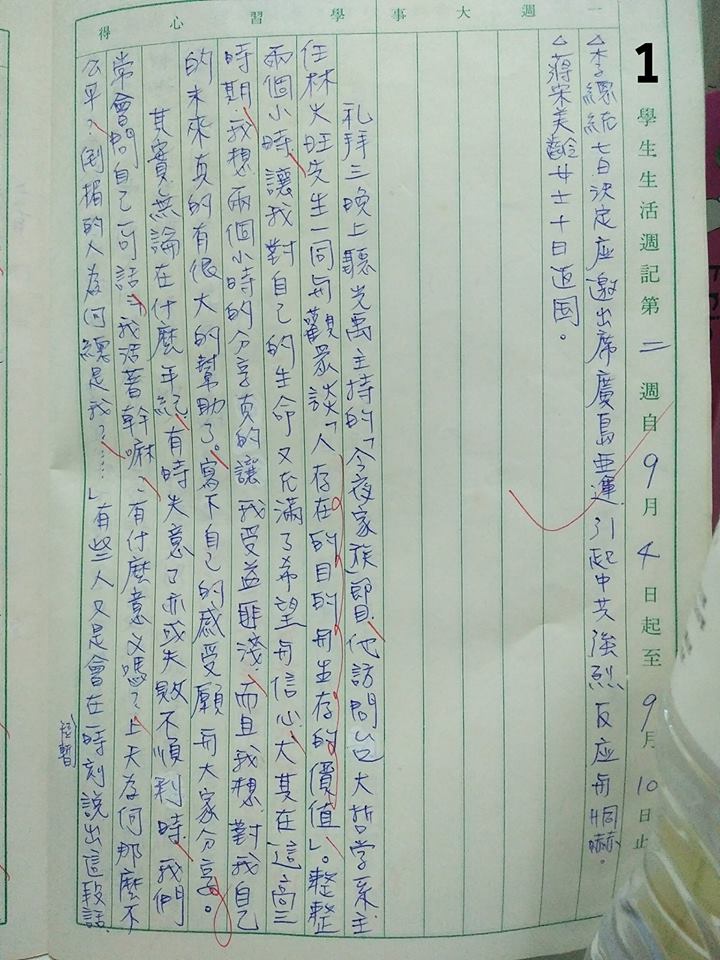 1 學生生活週記第二週自9月4日起至9月10日止
一週大事
△李總統七日決定应邀出席廣島亞運引起中共強烈反应與恫嚇。
△蔣宋美齡女士十日返国。
學習心得
礼拜三晚上聽光禹主持的「今夜家族」節目,他訪問台大哲学系主
任林火旺先生一同與觀眾談「人存在的目的與生存的價值」。整整
兩個小時,讓我對自己的生命又充滿了希望與信心,尤其在這高三
時期,我想兩個小時的分享真的讓我受益匪淺,而且我想對我自己
的未來真的有很大的幫助了。寫下自己的感受願與大家分享。
其實無論在什麼年紀,有時失意了亦或失敗不順利時,我們
常會問自己一句話:「我活著幹嘛,有什麼意义嗎?上天為何那麼不
公平?倒楣的人為何總是我?……」有些人又是會在一時刻說出這段話